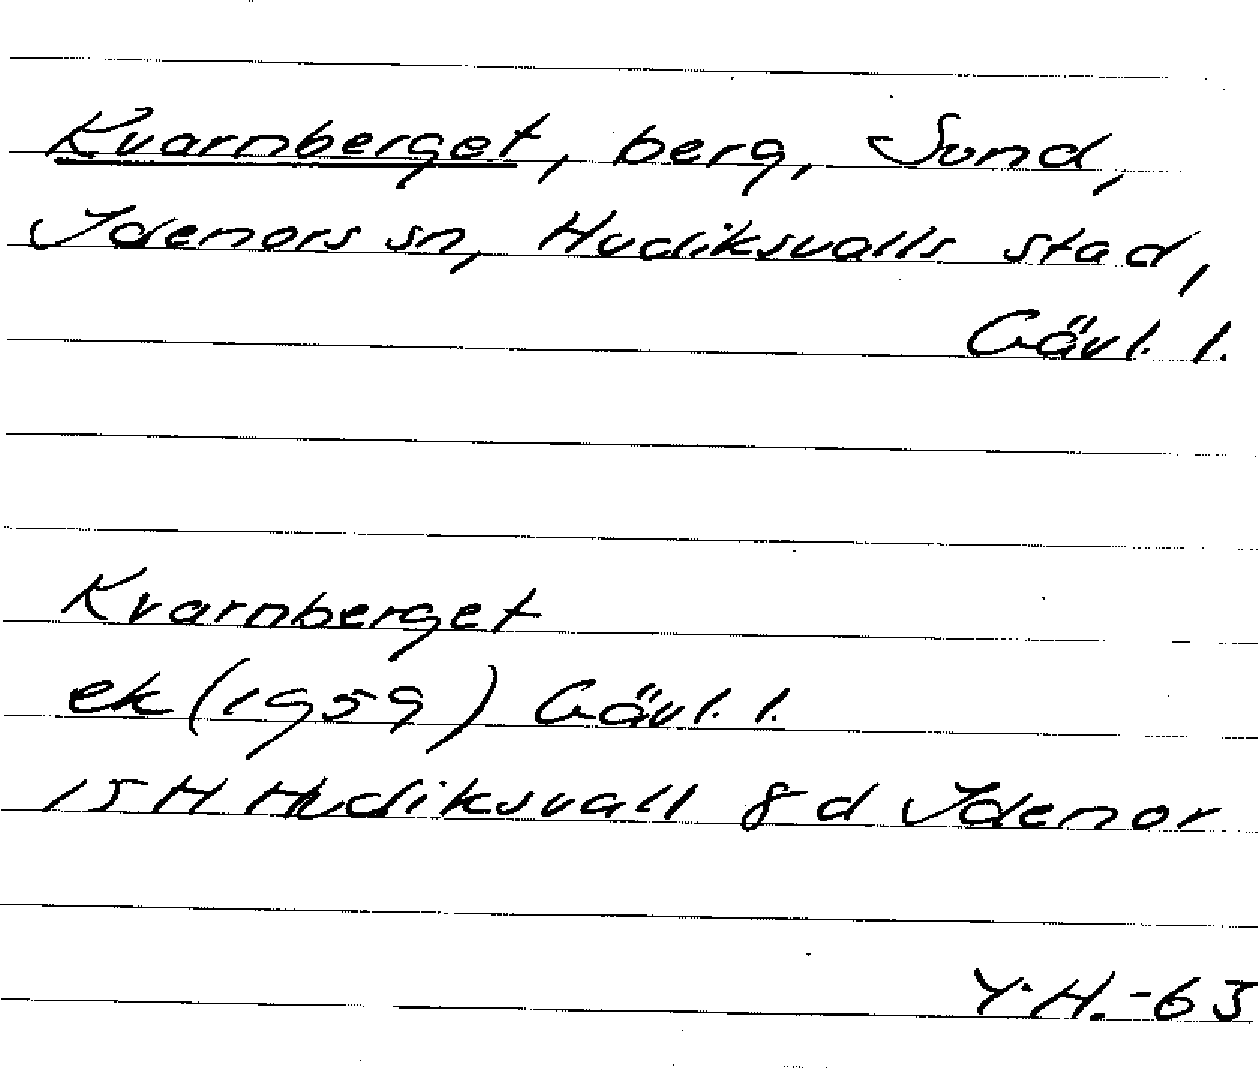 Kvarnberget, berg, Sund,
Idenors sn, Hudiksvalls stad,
Gävl. l.
Kvarnberget
ek (1959) Gävl. l.
15 H Hudiksvall 8 d Idenor
Y.H.-63